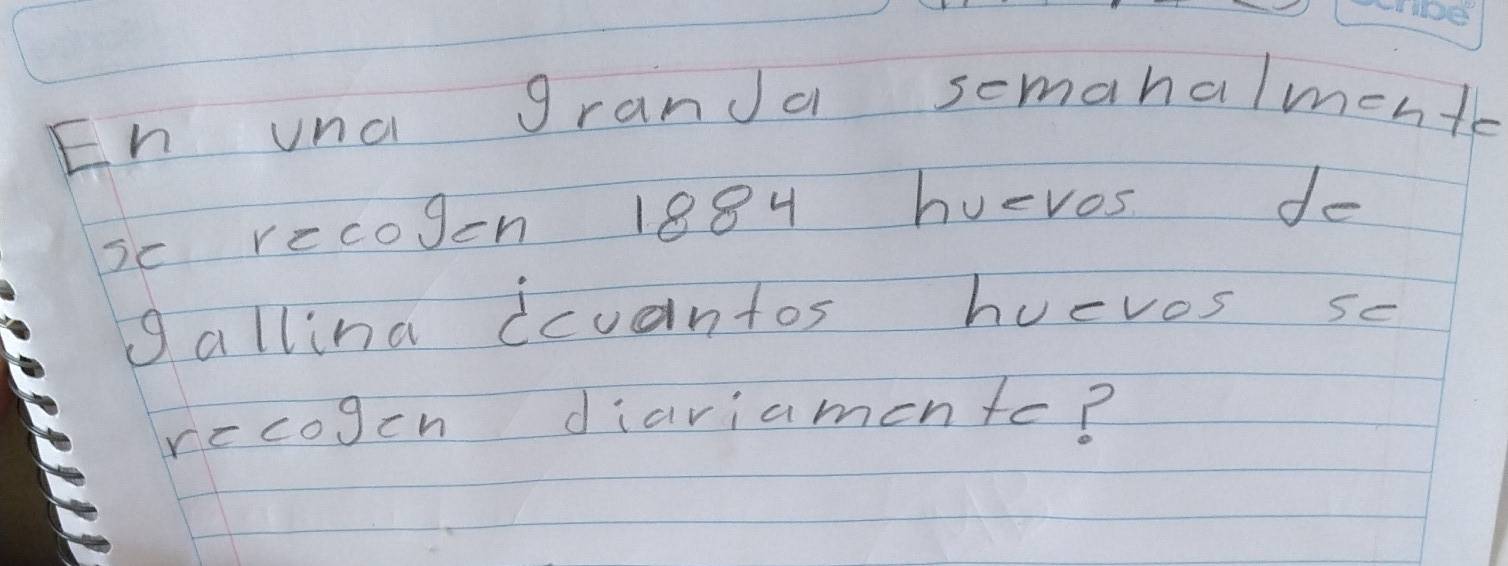 En una granja semanalmente
se recogen 1884 huevos de
gallina ¿cuantos huevos se
recogen diariamente?